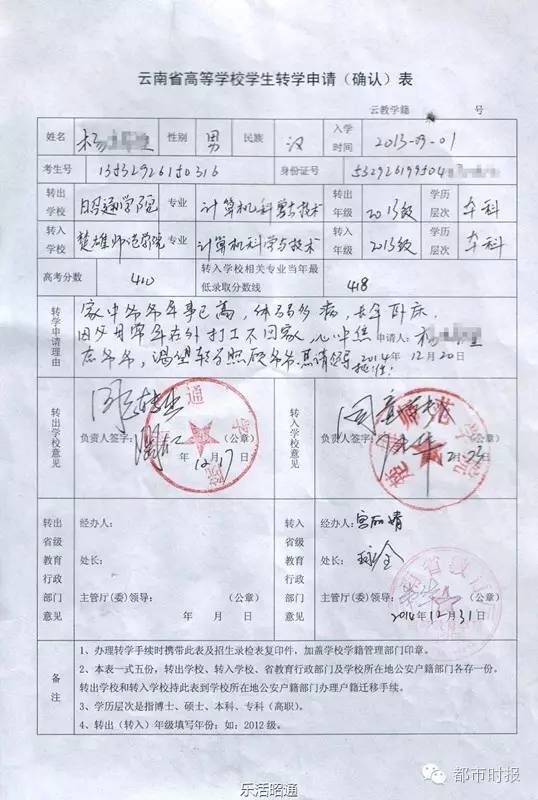 云南省高等学校学生转学申请（确认）表
云教学籍 号
姓名 杨 性别 男 民族 汉 入学时间 2013-09-01
考生号 13532926150316 身份证号 532926199504
转出学校 昭通学院 专业 计算机科学与技术 转出年级 2013级 学历层次 本科
转入学校 楚雄师范学院 专业 计算机科学与技术 转入年级 2013级 学历层次 本科
高考分数 410 转入学校相关专业当年最低录取分数线 418
转学申请理由
家中爷爷年事已高，体弱多病，长年卧床
因父母常年在外打工不回家，心中焦 申请人：杨
虑爷爷，渴望转学照顾爷爷。恳请领导批准！ 2014年12月20日
转出学校意见 同意转出 负责人签字： （公章） 年 12月17日
转入学校意见 同意 负责人签字： （公章） 12月23日
转出省级教育行政部门意见
经办人：
处长：
主管厅(委)领导： （公章）
年 月 日
转入省级教育行政部门意见
经办人：
处长：
主管厅(委)领导： （公章）
2014年12月31日
备注
1、办理转学手续时携带此表及招生录检表复印件，加盖学校学籍管理部门印章。
2、本表一式五份，转出学校、转入学校、省教育行政部门及学校所在地公安户籍部门各存一份。
转出学校和转入学校持此表到学校所在地公安户籍部门办理户籍迁移手续。
3、学历层次是指博士、硕士、本科、专科（高职）。
4、转出（转入）年级填写年份：如：2012级。
都市时报
乐活昭通